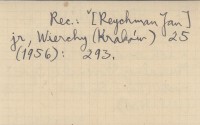 Rec.: "[Reychman Jan]
jr, Wierchy (Kraków) 25
(1956): 293.